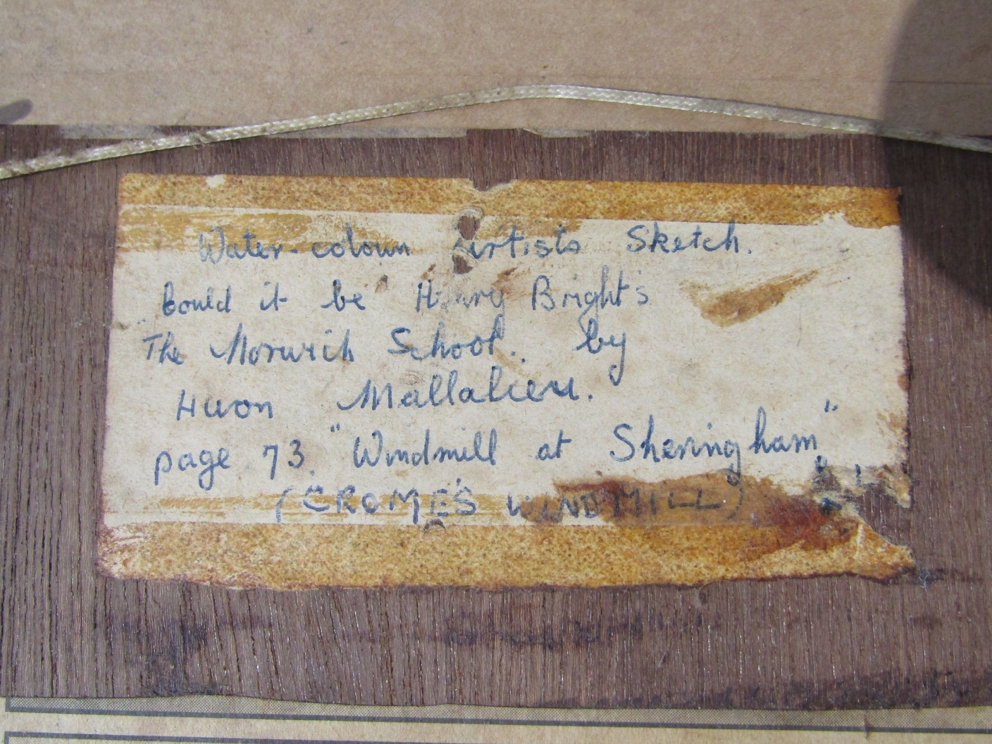 Water-colour Artists Sketch.
Could it be Henry Bright's
The Norwich School. by
Huon Mallalieu.
page 73. "Windmill at Sheringham"
(CROME'S WINDMILL)